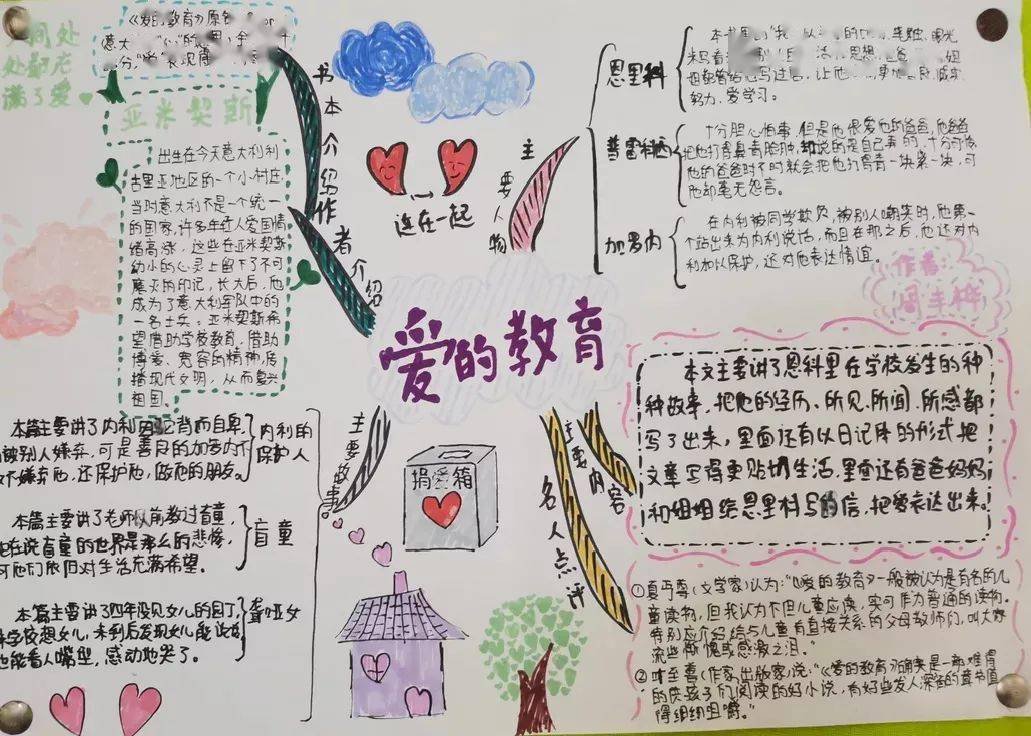 人间处
处都充
满了爱
《爱的教育》原名
意大
分
亚米契斯
出生在今天意大利利
古里亚地区的一个小村庄,
当时意大利不是一个统一
的国家,许多年轻人爱国情
绪高涨,这些在亚米契斯
幼小的心灵上留下了不可
磨灭的印记,长大后,他
成为了意大利军队中的
一名士兵。亚米契斯希
望借助学校教育,借助
博爱、宽容的精神,传
播现代文明,从而复兴
祖国。
书本介绍
作者介绍
连在一起
主要人物
恩里科
本书里的"我"
米写着
姐
努力、爱学习。
普雷科西
十分胆心怕事,但是他很爱他的爸爸,他爸爸
把他打得鼻青脸肿,却说的是自己弄的,十分可怜
他的爸爸时不时就会把他打得青一块紫一块,可
他却毫无怨言。
加罗内
在内利被同学欺负,被别人嘲笑时,他第一
个站出来为内利说话,而且在那之后,他还对内
利加以保护,还对他表达情谊。
作者:
爱的教育
本文主要讲了恩科里在学校发生的种
种故事,把他的经历、所见、所闻、所感都
写了出来,里面还有以日记体的形式把
文章写得更贴切生活,里查还有爸爸妈妈
和姐姐给恩里科写的信,把爱表达出来。
主要故事
内利的
保护人
本篇主要讲了内利因驼背而自卑
被别人嫌弃,可是善良的加多内不
不嫌弃他,还保护他,做他的朋友。
盲童
本篇主要讲了老师以前教过盲童,
他在说盲童的世界是那么的悲惨,
可他们依旧对生活充满希望。
聋哑女
本篇主要讲了四年没见女儿的园丁,
来学校想女儿,来到后发现女儿能说话
也能看人嘴型,感动地哭了。
捐爱箱
主要内容
名人点评
①夏丏尊(文学家)认为:"《爱的教育》一般被认为是有名的儿
童读物,但我认为不但儿童应读,实可作为普通的读物。
特别应介绍给与儿童有直接关系的父母教师们,叫大家
流些惭愧或感激之泪。"
②叶至善(作家,出版家)说:"《爱的教育》确实是一部难得
的供孩子们阅读的好小说,有好些发人深省的章节值
得细细咀嚼。"